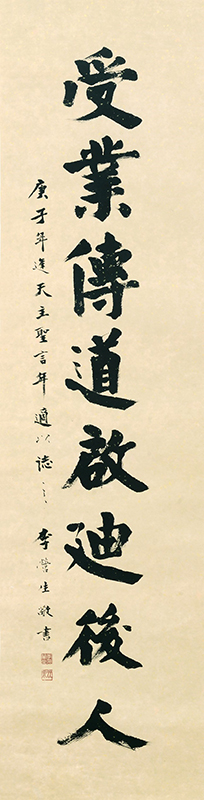 受業傳道啟迪後人
庚子年逢天主聖言年適以誌之
李營生敬書